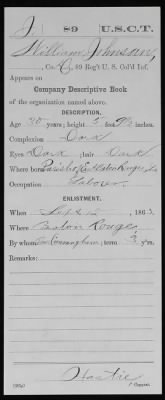 J 89 U.S.C.T.
William Johnson,
, Co. C, 89 Reg't U. S. Col'd Inf.
Appears on
Company Descriptive Book
of the organization named above.
DESCRIPTION.
Age years; height 5 feet inches.
Complexion Dark
Eyes Dark; hair Dark
Where born Parish, E. Baton Rouge, La
Occupation Laborer
ENLISTMENT.
When Sept 186
Where Baton Rouge
By whom Cunningham; term 3 y'rs.
Remarks:
Copyist.